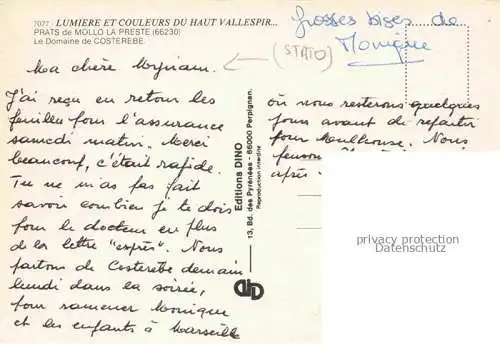 7077 : LUMIERE ET COULEURS DU HAUT VALLESPIR...
PRATS de MOLLO LA PRESTE (66230)
Le Domaine de COSTEREBE.
Grosses bises de
Monique
(STATO)
Ma chère Myriam.
J'ai reçu en retour les
feuilles pour l'assurance
samedi matin. Merci
beaucoup, c'était rapide.
Tu ne m'as pas fait
savoir combien je te dois
pour le docteur en plus
de la lettre "exprès". Nous
partons de Costerebe demain
lundi dans la soirée,
pour ramener Monique
et les enfants à Marseille
où nous resterons quelques
jours avant de repartir
pour Mulhouse. Nous
pensons
après
Editions DINO
13, Bd. des Pyrénées - 66000 Perpignan.
Reproduction interdite
privacy protection
Datenschutz